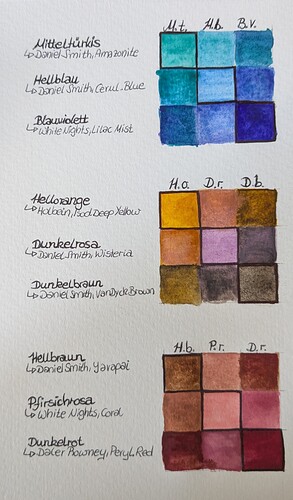 M.t. H.b. B.v.
Mitteltürkis
↳ Daniel Smith, Amazonite
Hellblau
↳ Daniel Smith, Cerul. Blue
Blauviolett
↳ White Nights, Lilac Mist
H.o. D.r. D.b.
Hellorange
↳ Holbein, Isod. Deep Yellow
Dunkelrosa
↳ Daniel Smith, Wisteria
Dunkelbraun
↳ Daniel Smith, VanDyck Brown
H.b. P.r. D.r.
Hellbraun
↳ Daniel Smith, Yavapai
Pfirsichrosa
↳ White Nights, Coral
Dunkelrot
↳ Daler Rowney, Peryl. Red